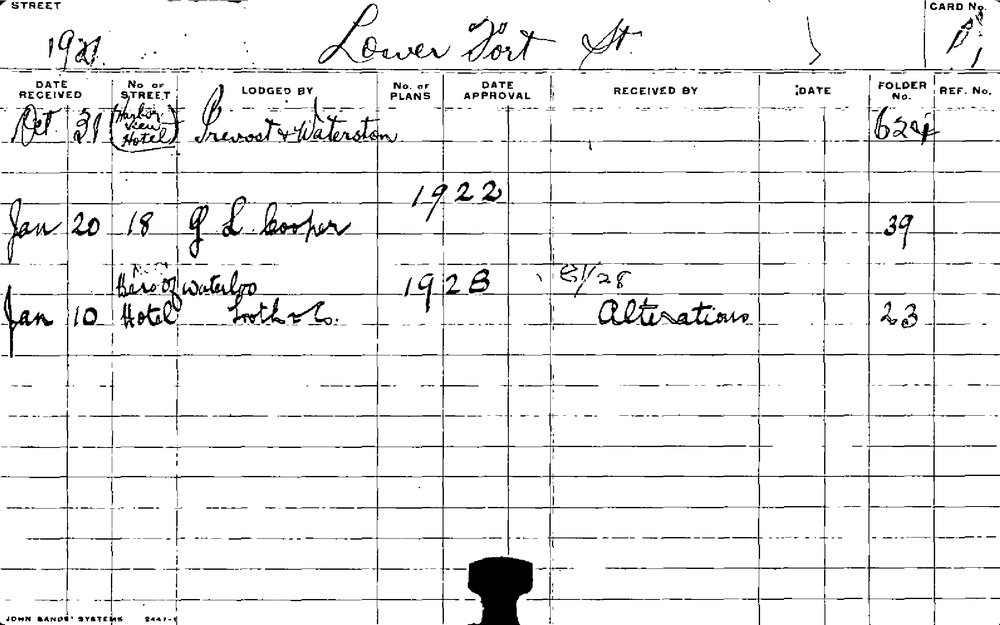 STREET
CARD No.
1921 Lower Fort St.
DATE RECEIVED No of STREET LODGED BY No. of PLANS DATE APPROVAL RECEIVED BY DATE FOLDER No. REF. No.
Oct 31 (Harbor View Hotel) Prevost & Waterston 624
1922
Jan 20 18 G L Cooper 39
Hero of Waterloo 1928 /28
Jan 10 Hotel Tooth & Co. Alterations 23
JOHN SANDS' SYSTEMS